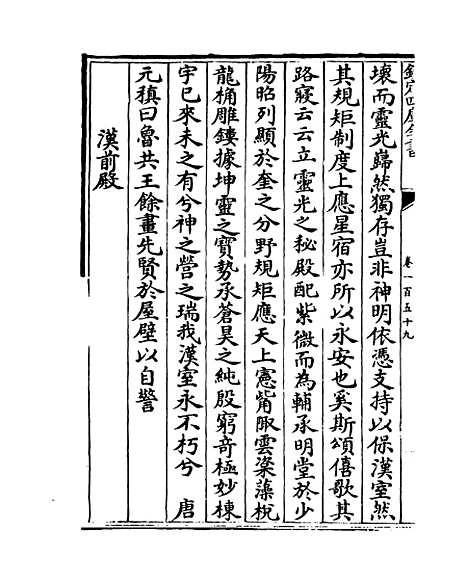 欽定四庫全書
卷一百五十九
壞而靈光巋然獨存豈非神明依憑支持以保漢室然
其規矩制度上應星宿亦所以永安也奚斯頌僖歌其
路寢云云立靈光之秘殿配紫微而為輔承明堂於少
陽昭列顯於奎之分野規矩應天上憲觜陬雲楶藻梲
龍桷雕鏤據坤靈之寶勢承蒼昊之純殷窮奇極妙棟
宇已來未之有兮神之營之瑞我漢室永不朽兮 唐
元稹曰魯共王餘畫先賢於屋壁以自警
漢前殿